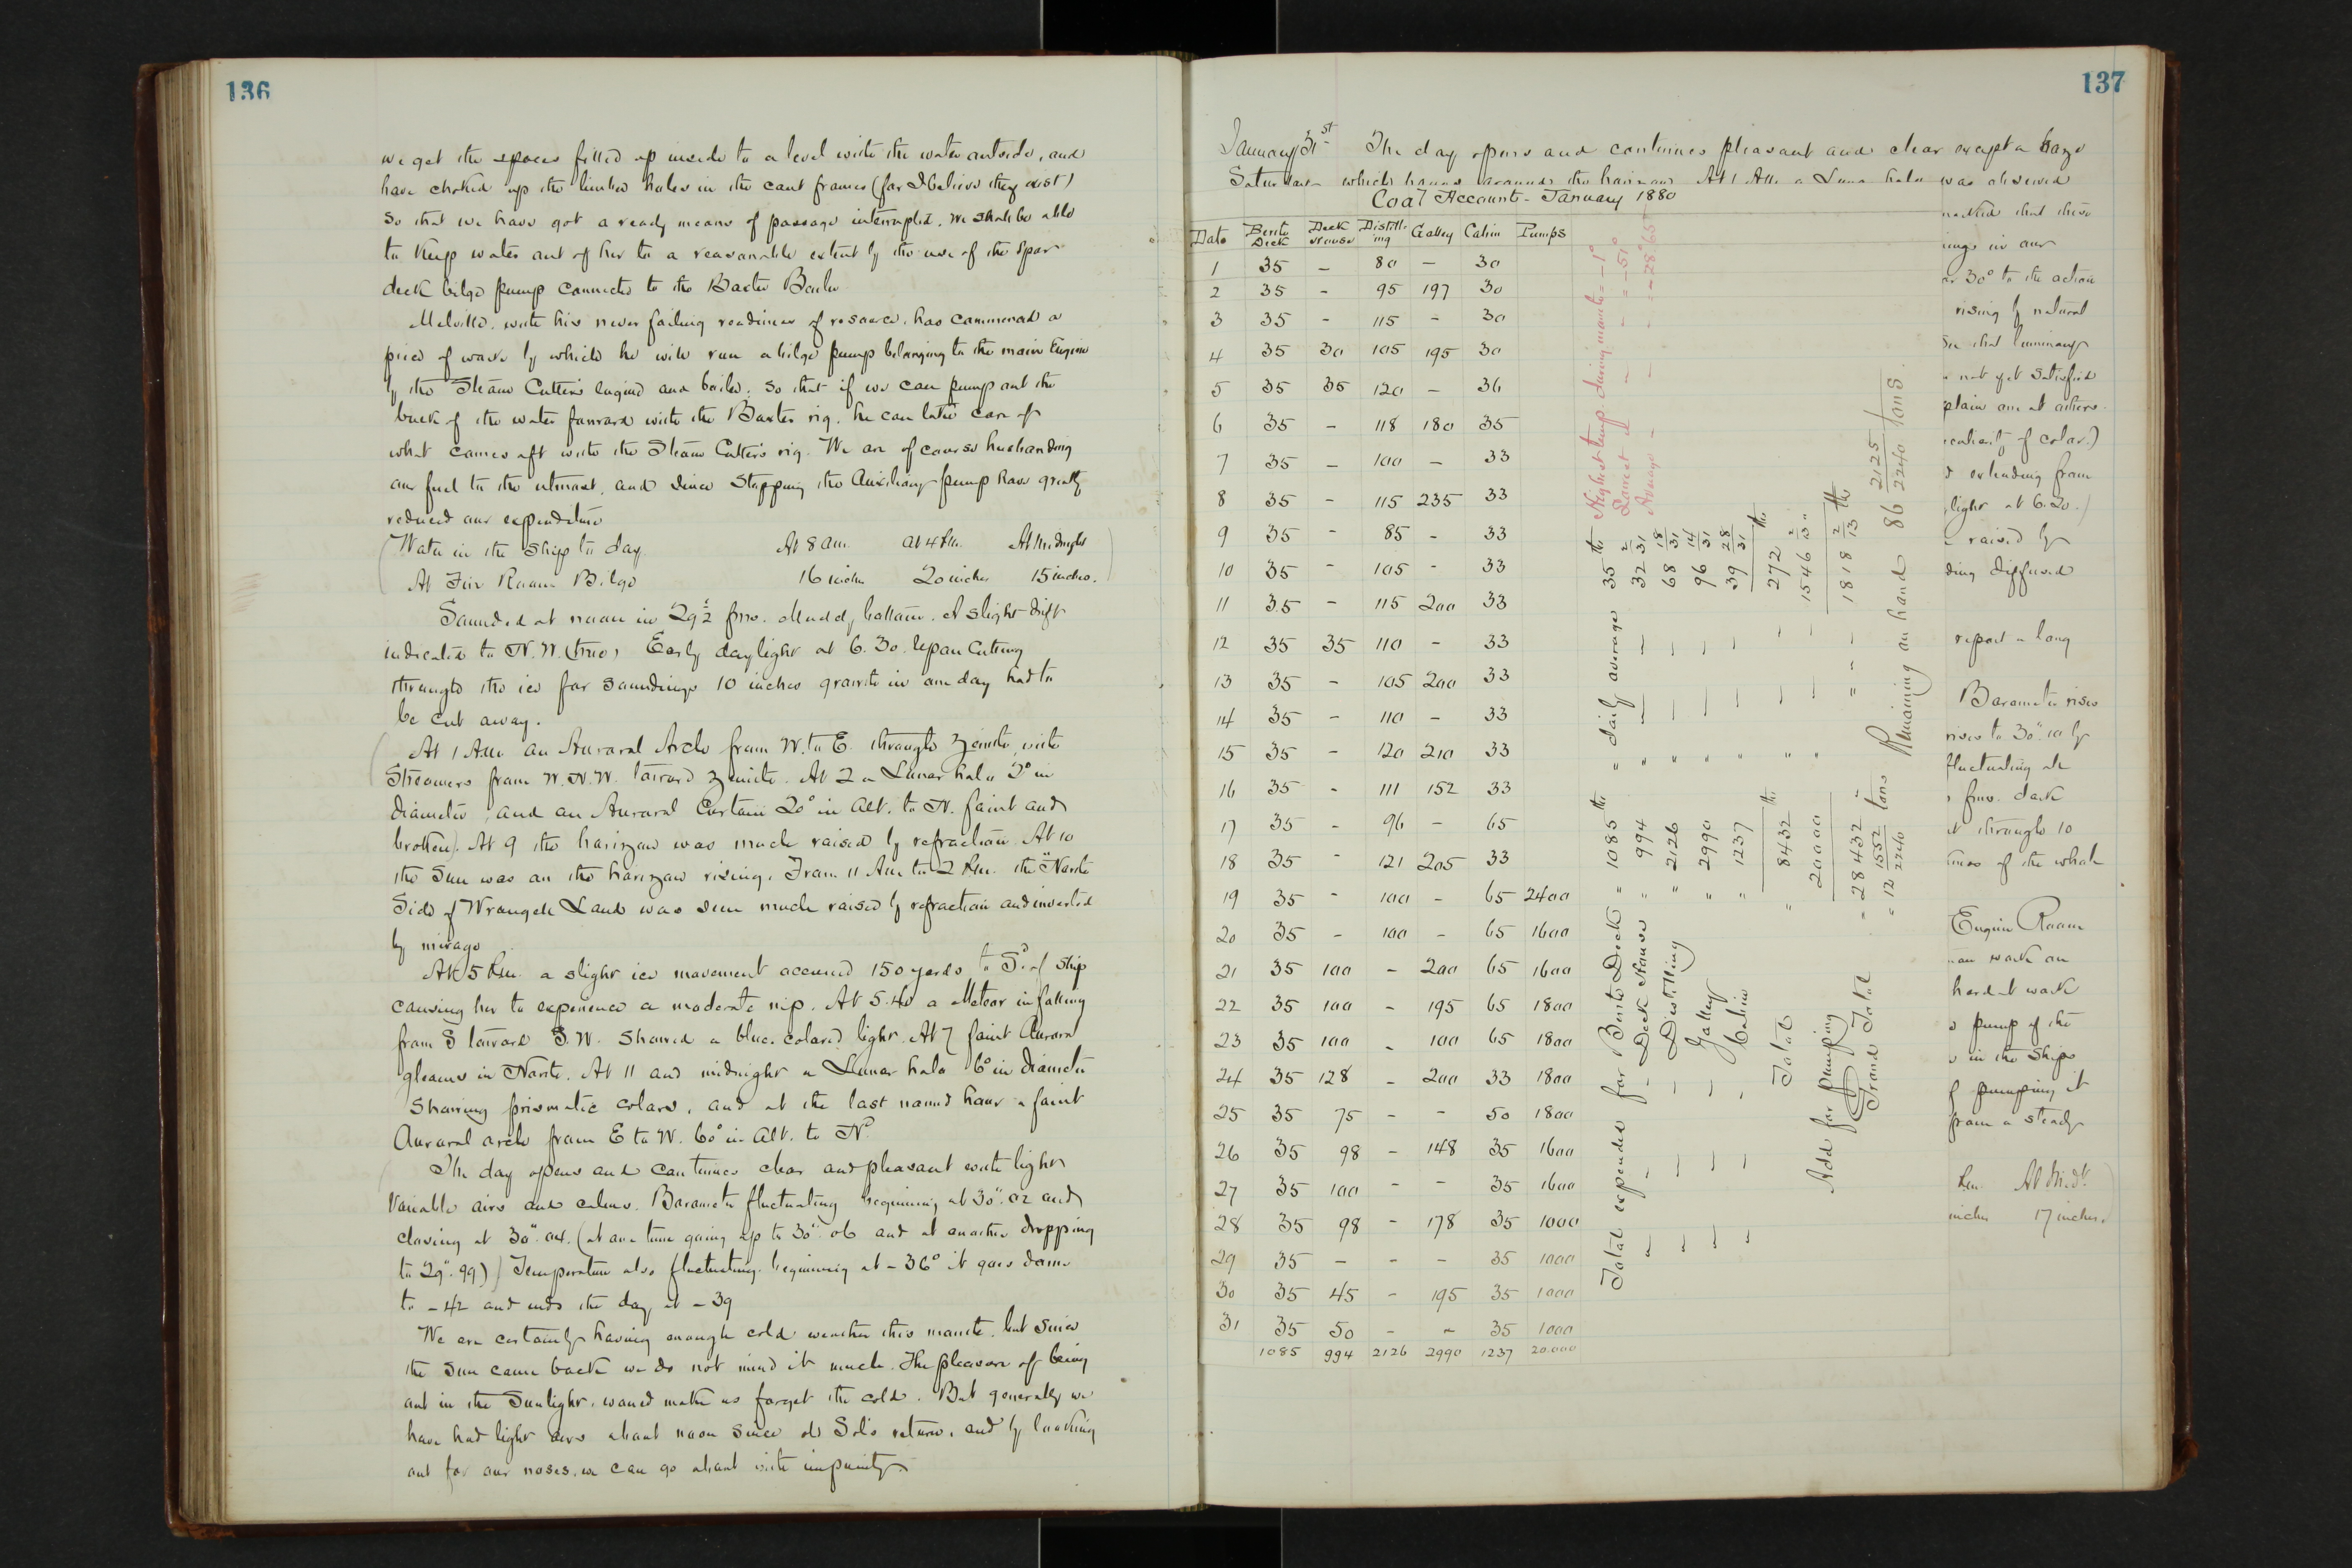 136
we get the spaces filled up inside to a level with the water outside, and
have choked up the limber holes in the cant frames (for I believe they exist)
so that we have got a ready means of passage interrupted, we shall be able
to keep water out of her to a reasonable extent by the use of the spar
deck bilge pump connected to the Baxter Boiler
Melville, with his never failing readiness of resource, has commenced a
piece of work by which he will run a bilge pump belonging to the main Engine
by the Steam Cutter's engine and boiler, so that if we can pump out the
bulk of the water forward with the Baxter rig, he can take care of
what comes aft with the Steam Cutter's rig. We are of course husbanding
our fuel to the utmost, and since stopping the Auxiliary pump have greatly
reduced our expenditure
(Water in the ship to day At 8 am. at 4 P.m. At Midnight
At Fire Room Bilge 16 inches 20 inches 15 inches.)
Sounded at noon in 29½ fms. Muddy bottom. A slight drift
indicated to N.W. (true) Early daylight at 6.30. Upon Cutting
through the ice for soundings 10 inches growth in one day had to
be cut away.
(At 1 A.m. an Auroral Arch from W. to E. through Zenith, with
Streamers from W.N.W. toward Zenith. At 2 a Lunar halo 2° in
diameter, and an Auroral Curtain 20° in Alt. to N. faint and
broken). At 9 the horizon was much raised by refraction. At 10
the Sun was on the horizon rising. From 11 A.m. to 2 P.m. the North
Side of Wrangell Land was seen much raised by refraction and inverted
by mirage
At 5 P.m. a slight ice movement occurred 150 yards to Sd. of Ship
causing her to experience a moderate nip. At 5.40 a Meteor in falling
from S toward S.W. showed a blue colored light. At 7 faint Aurora
gleams in North. At 11 and midnight a Lunar halo 6° in diameter
showing prismatic colors, and at the last named hour a faint
Auroral arch from E to W. 60° in Alt. to Nd.
(The day opens and continues clear and pleasant with light
variable airs and calms. Barometer fluctuating beginning at 30".02 and
closing at 30".04. (at one time going up to 30".06 and at another dropping
to 29".99)) Temperature also fluctuating. beginning at -36° it goes down
to -42 and ends the day at -39
We are certainly having enough cold weather this month, but since
the Sun came back we do not mind it much. The pleasure of being
out in the Sunlight, would make us forget the cold. But generally we
have had light airs about noon since old Sol's return, and by looking
out for our noses, we can go about with impunity.
137
January 31st The day opens and continues pleasant and clear except a haze
Saturday which hangs around the horizon At 1 A.m. a Luna halo was observed
Coal Account - January 1880
Date Berth Deck Deck House Distilling Galley Cabin Pumps
1 35 - 80 - 30
2 35 - 95 197 30
3 35 - 115 - 30
4 35 30 105 195 30
5 35 35 120 - 36
6 35 - 118 180 35
7 35 - 100 - 33
8 35 - 115 235 33
9 35 - 85 - 33
10 35 - 105 - 33
11 35 - 115 200 33
12 35 35 110 - 33
13 35 - 105 200 33
14 35 - 110 - 33
15 35 - 120 210 33
16 35 - 111 152 33
17 35 - 96 - 65
18 35 - 121 205 33
19 35 - 100 - 65 2400
20 35 - 100 - 65 1600
21 35 100 - 200 65 1600
22 35 100 - 195 65 1800
23 35 100 - 100 65 1800
24 35 128 - 200 33 1800
25 35 75 - - 50 1800
26 35 98 - 148 35 1600
27 35 100 - - 35 1600
28 35 98 - 178 35 1000
29 35 - - - 35 1000
30 35 45 - 195 35 1000
31 35 50 - - 35 1000
1085 994 2126 2990 1237 20.000
Highest temp during month = -1°
Lowest " - - = -51°
Average - - - = -28.65
Total expended for Berth Deck = 1085 lbs " daily average 35 lbs
" - - Deck House " 994 " - - 32 2/31
" - - Distilling " 2126 " - - 68 18/31
" - - Galley " 2990 " - - 96 14/31
" - - Cabin " 1237 " - - 39 28/31
Total " 8432 lbs " - - 272 lbs
Add for pumping 20000 " - - 1546 2/13 "
Grand Total = 28432 " " " - 1818 2/13 lbs
= 12 1552/2240 tons
Remaining on hand 86 2125/2240 tons.
marked that there
ings in our
or 30° to the action
rising by natural
See that luminary
not yet satisfied
plain one at others
culiarity of color.)
extending from
light at 6.20.)
raised by
ding diffused
report a long
Barometer rises
rises to 30".10 by
fluctuating
fms. dark
through 10
times of the whole
Engine Room
work on
hard at work
pump of the
in the Ships
f pumping it
from a steady
P.m. At Midt.
inches 17 inches.)